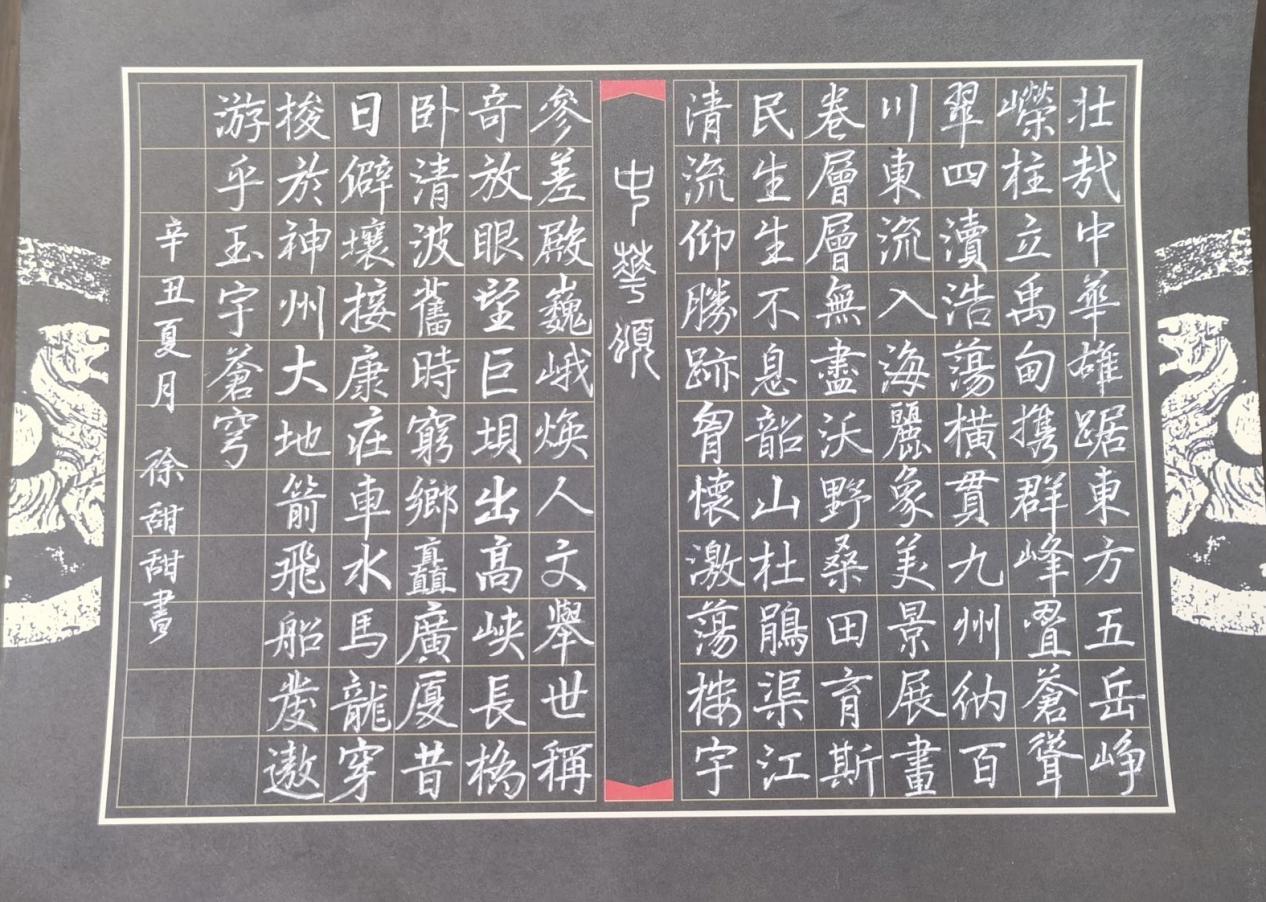 壮哉中華雄踞東方五岳峥
嶸柱立禹甸携群峰疊蒼聳
翠四瀆浩蕩横貫九州纳百
川東流入海麗象美景展畫
卷層層無盡沃野桑田育斯
民生生不息韶山杜鵑渠江
清流仰勝跡胷懷激蕩楼宇
中華頌
參差殿巍峨焕人文舉世稱
奇放眼望巨垻出高峡長橋
卧清波舊時窮鄉矗廣厦昔
日僻壤接康庄車水馬龍穿
梭於神州大地箭飛船發遨
游乎玉宇蒼穹
辛丑夏月 徐甜甜書